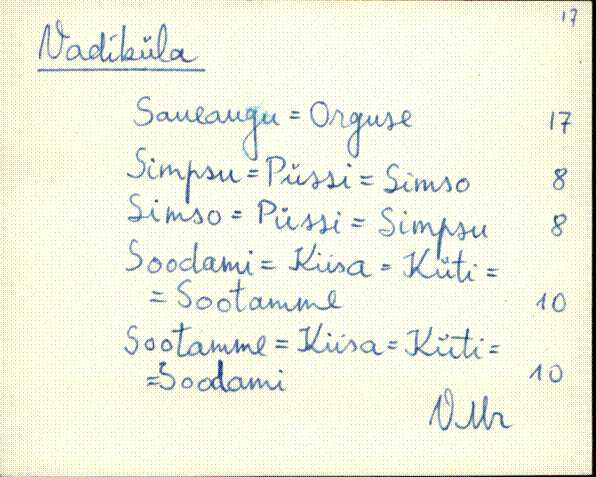 17
Vadiküla
Saueaugu = Orguse 17
Simpsu = Püssi = Simso 8
Simso = Püssi = Simpsu 8
Soodami = Kiisa = Küti =
= Sootamme 10
Sootamme = Kiisa = Küti =
= Soodami 10